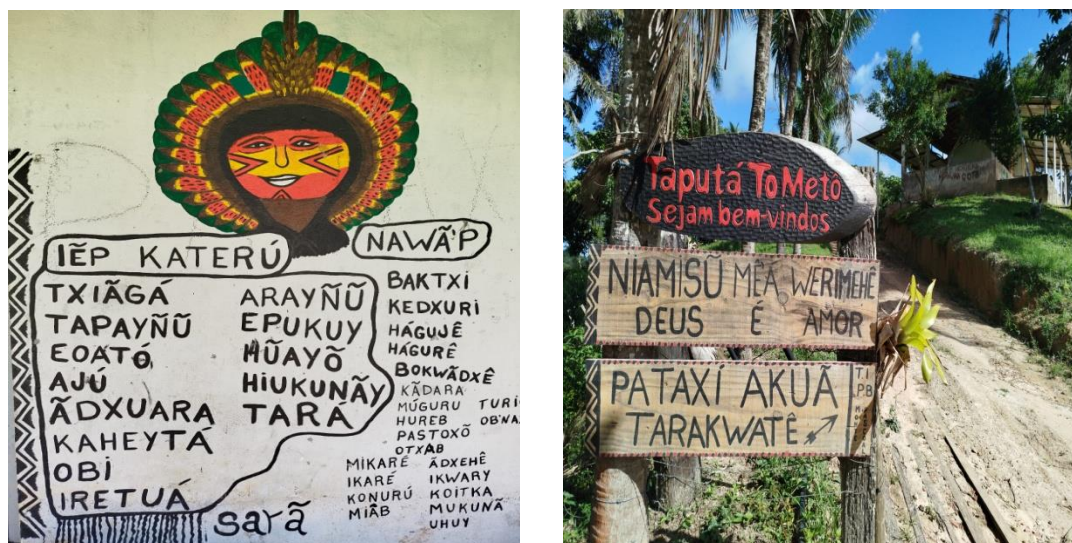 IẼP KATERÚ
TXIÃGÁ
TAPAYÑŨ
EOATÓ
AJÚ
ÃDXUARA
KAHEYTÁ
OBI
IRETUÁ
ARAYÑŨ
EPUKUY
HŨAYÕ
HIUKUNÃY
TARÁ
NAWÃ'P
BAKTXI
KEDXURI
HÁGUJÊ
HÁGURÊ
BOKWÃDXÊ
KÃDARA
MÚGURU
HUREB
PASTOXÕ
OTXAB
MIKARÉ ÃDXEHÊ
IKARÉ IKWARY
KONURÚ KOITKA
MIÃB MUKUNÃ
UHUY
sarã
Taputá To Metó
Sejam bem-vindos
NIAMISŨ MẼÁ WERIMEHÊ
DEUS É AMOR
PATAXÍ AKUÃ
TARAKWATÊ